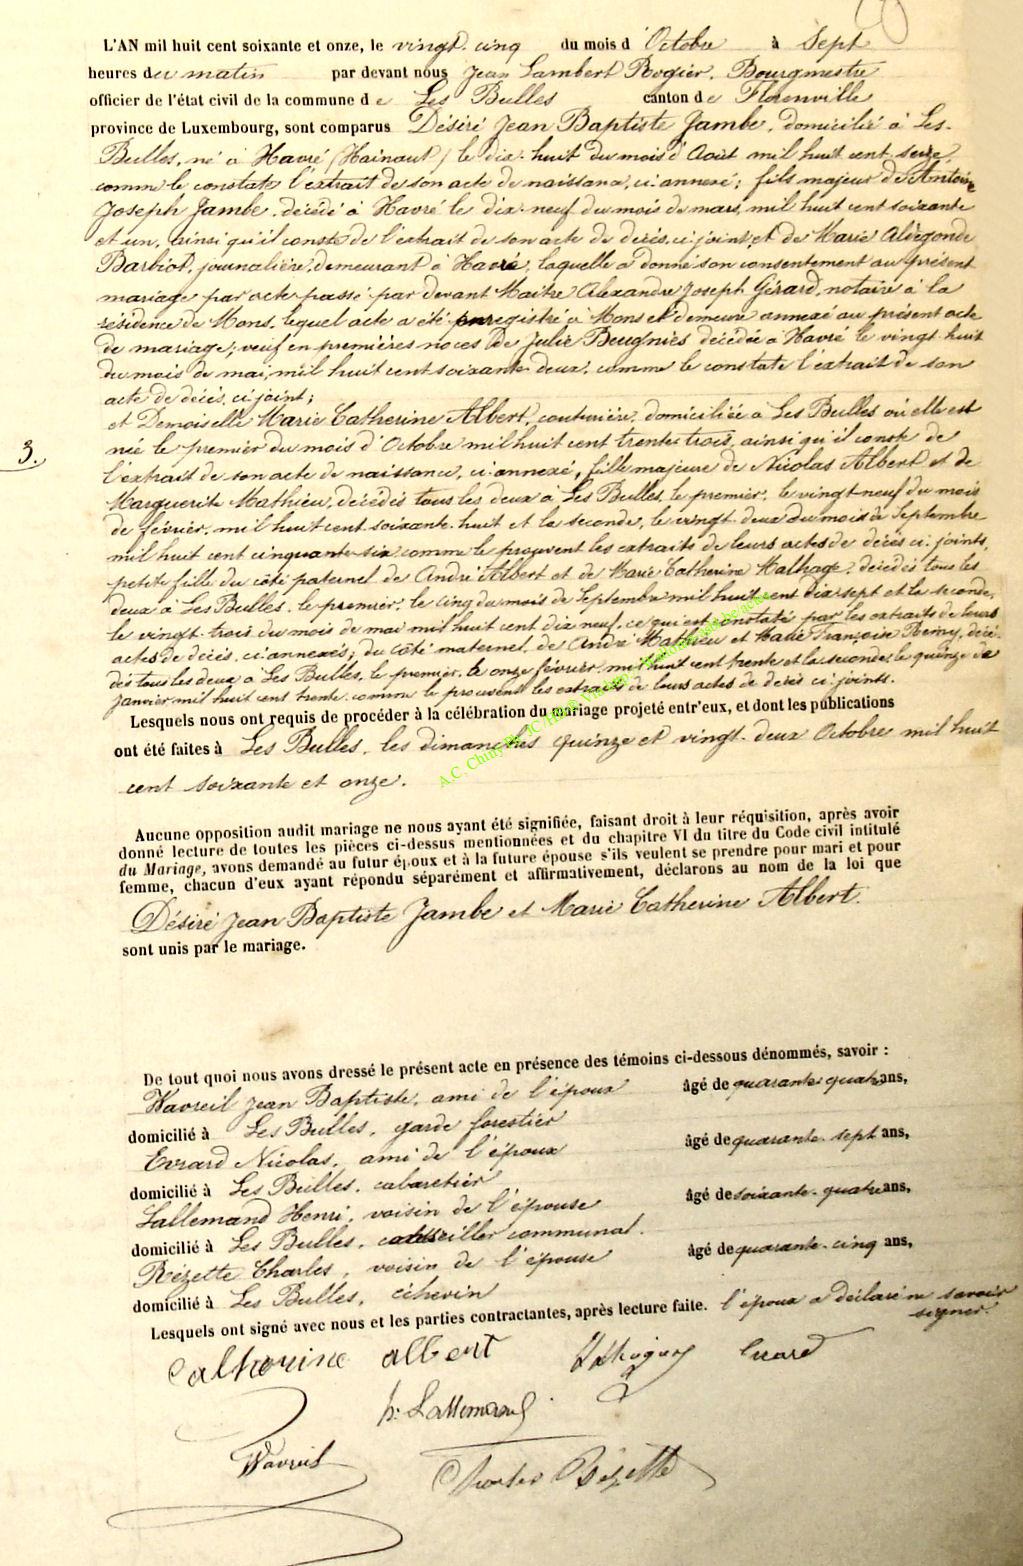 L'AN mil huit cent soixante et onze, le vingt-cinq du mois d'Octobre à Sept
heures du matin par devant nous Jean Lambert Rogier, Bourgmestre
officier de l'état civil de la commune de Les Bulles canton de Florenville
province de Luxembourg, sont comparus Désiré Jean Baptiste Jambe, domicilié à Les-
Bulles, né à Havré (Hainaut) le dix-huit du mois d'Août mil huit cent seize,
comme le constate l'extrait de son acte de naissance, ci-annexé; fils majeur de Antoine
Joseph Jambe, décédé à Havré le dix-neuf du mois de mars, mil huit cent soixante
et un, ainsi qu'il conste de l'extrait de son acte de décès, ci-joint, et de Marie Aldegonde
Barbiot, journalière, demeurant à Havré, laquelle a donné son consentement au présent
mariage par acte passé par devant Maître Alexandre Joseph Gérard, notaire à la
résidence de Mons, lequel acte a été enregistré à Mons et demeure annexé au présent acte
de mariage; veuf en premières noces de Julie Beugniès décédée à Havré le vingt-huit
du mois de mai, mil huit cent soixante-deux, comme le constate l'extrait de son
acte de décès, ci-joint;
et Demoiselle Marie Catherine Albert, couturière, domiciliée à Les Bulles où elle est
3.
née le premier du mois d'Octobre mil huit cent trente-trois, ainsi qu'il conste de
l'extrait de son acte de naissance, ci-annexé, fille majeure de Nicolas Albert et de
Marguerite Mathieu, décédés tous les deux à Les Bulles, le premier, le vingt-neuf du mois
de février, mil huit cent soixante-huit et la seconde, le vingt-deux du mois de Septembre
mil huit cent cinquante-six comme le prouvent les extraits de leurs actes de décès ci-joints,
petite fille du côté paternel de André Albert et de Marie Catherine, décédés tous les
deux à Les Bulles, le premier, le cinq du mois de Septembre mil huit cent dix-sept et la seconde,
le vingt-trois du mois de mai mil huit cent dix neuf, ce qui est constaté par les extraits de leurs
actes de décès, ci-annexés; du côté maternel, de André Mathieu et Marie Françoise Remy, décé-
dés tous les deux à Les Bulles, le premier, le onze février, mil huit cent trente et la seconde, le quinze de
janvier mil huit cent trente comme le prouvent les extraits de leurs actes de décès ci-joints.
Lesquels nous ont requis de procéder à la célébration du mariage projeté entr'eux, et dont les publications
ont été faites à Les Bulles, les dimanches quinze et vingt-deux Octobre mil huit
cent soixante et onze.
A.C. Chiny
Aucune opposition audit mariage ne nous ayant été signifiée, faisant droit à leur réquisition, après avoir
donné lecture de toutes les pièces ci-dessus mentionnées et du chapitre VI du titre du Code civil intitulé
du Mariage, avons demandé au futur époux et à la future épouse s'ils veulent se prendre pour mari et pour
femme, chacun d'eux ayant répondu séparément et affirmativement, déclarons au nom de la loi que
Désiré Jean Baptiste Jambe et Marie Catherine Albert.
sont unis par le mariage.
De tout quoi nous avons dressé le présent acte en présence des témoins ci-dessous dénommés, savoir :
Wavreil Jean Baptiste, ami de l'époux âgé de quarante-quatre ans,
domicilié à Les Bulles, garde forestier
Evrard Nicolas, ami de l'époux âgé de quarante-sept ans,
domicilié à Les Bulles, cabaretier
Lallemand Henri, voisin de l'épouse âgé de soixante-quatre ans,
domicilié à Les Bulles, conseiller communal.
Rézette Charles, voisin de l'épouse âgé de quarante-cinq ans,
domicilié à Les Bulles, échevin
Lesquels ont signé avec nous et les parties contractantes, après lecture faite. l'époux a déclaré ne savoir
signer.
Catherine albert Evrard
h. Lallemand
Wavreil Charles Rézette